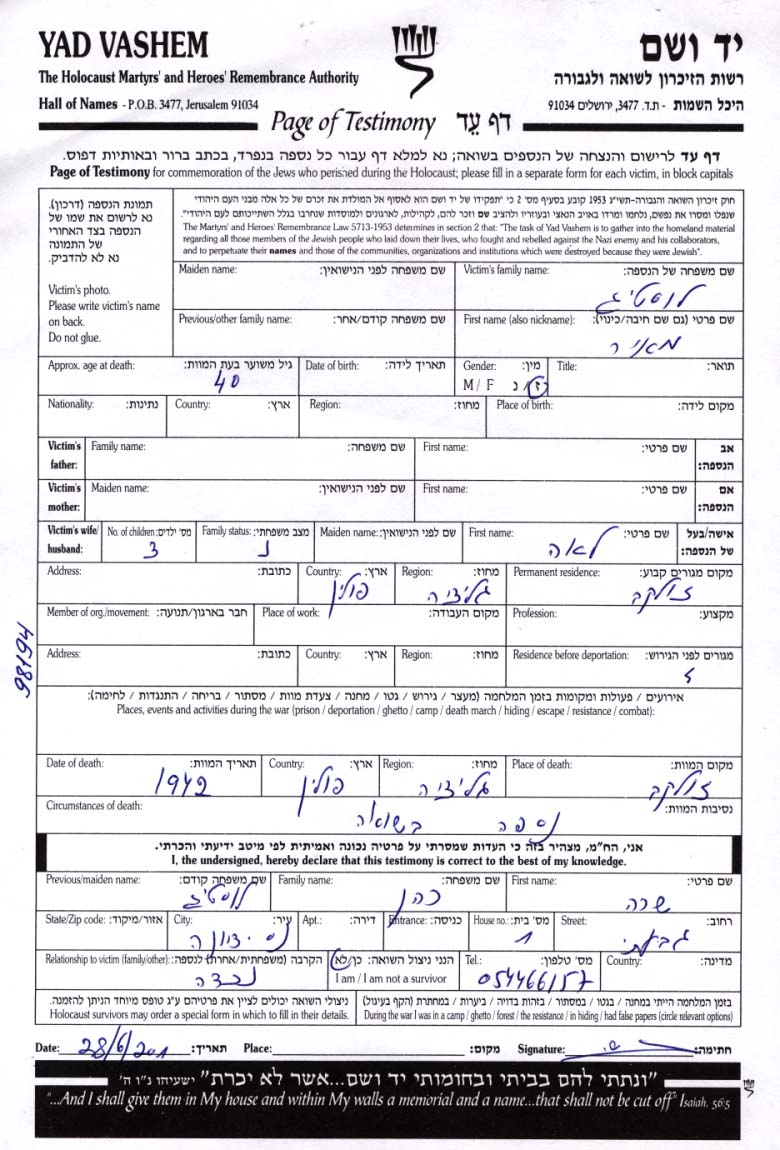 YAD VASHEM
יד ושם
The Holocaust Martyrs' and Heroes' Remembrance Authority
רשות הזיכרון לשואה ולגבורה
Hall of Names - P.O.B. 3477, Jerusalem 91034
היכל השמות - ת.ד. 3477, ירושלים 91034
Page of Testimony דף עד
דף עד לרישום והנצחה של הנספים בשואה; נא למלא דף עבור כל נספה בנפרד, בכתב ברור ובאותיות דפוס.
Page of Testimony for commemoration of the Jews who perished during the Holocaust; please fill in a separate form for each victim, in block capitals
תמונת הנספה (דרכון).
נא לרשום את שמו של
הנספה בצד האחורי
של התמונה
נא לא להדביק.
Victim's photo.
Please write victim's name
on back.
Do not glue.
חוק זיכרון השואה והגבורה-תשי"ג 1953 קובע בסעיף מס' 2 כי "תפקידו של יד ושם הוא לאסוף אל המולדת את זכרם של כל אלה מבני העם היהודי
שנפלו ומסרו את נפשם, נלחמו ומרדו באויב הנאצי ובעוזריו ולהציב שם וזכר להם, לקהילות, לארגונים ולמוסדות שנחרבו בגלל השתייכותם לעם היהודי".
The Martyrs' and Heroes' Remembrance Law 5713-1953 determines in section 2 that: "The task of Yad Vashem is to gather into the homeland material
regarding all those members of the Jewish people who laid down their lives, who fought and rebelled against the Nazi enemy and his collaborators,
and to perpetuate their names and those of the communities, organizations and institutions which were destroyed because they were Jewish".
Maiden name: שם משפחה לפני הנישואין: Victim's family name: שם משפחה של הנספה:
לוסטיג
Previous/other family name: שם משפחה קודם/אחר: First name (also nickname): שם פרטי (גם שם חיבה/כינוי):
מאיר
Approx. age at death: גיל משוער בעת המוות: Date of birth: תאריך לידה: Gender: מין: Title: תואר:
40 M / F ז / נ
Nationality: נתינות: Country: ארץ: Region: מחוז: Place of birth: מקום לידה:
Victim's father: Family name: שם משפחה: First name: שם פרטי: אב הנספה:
Victim's mother: Maiden name: שם לפני הנישואין: First name: שם פרטי: אם הנספה:
Victim's wife/ husband: No. of children: מס' ילדים: Family status: מצב משפחתי: Maiden name: שם לפני הנישואין: First name: שם פרטי: אישה/בעל של הנספה:
3 נ לאה
Address: כתובת: Country: ארץ: Region: מחוז: Permanent residence: מקום מגורים קבוע:
פולין גליציה זולקב
Member of org./movement: חבר בארגון/תנועה: Place of work: מקום העבודה: Profession: מקצוע:
Address: כתובת: Country: ארץ: Region: מחוז: Residence before deportation: מגורים לפני הגירוש:
98194
אירועים / פעולות ומקומות בזמן המלחמה (מעצר / גירוש / גטו / מחנה / צעדת מוות / מסתור / בריחה / התנגדות / לחימה):
Places, events and activities during the war (prison / deportation / ghetto / camp / death march / hiding / escape / resistance / combat):
Date of death: תאריך המוות: Country: ארץ: Region: מחוז: Place of death: מקום המוות:
1942 פולין גליציה זולקב
Circumstances of death: נסיבות המוות:
נספה בשואה
אני, הח"מ, מצהיר בזה כי העדות שמסרתי על פרטיה נכונה ואמיתית לפי מיטב ידיעתי והכרתי.
I, the undersigned, hereby declare that this testimony is correct to the best of my knowledge.
Previous/maiden name: שם משפחה קודם: Family name: שם משפחה: First name: שם פרטי:
לוסטיג כהן שרה
State/Zip code: אזור/מיקוד: City: עיר: Apt.: דירה: Entrance: כניסה: House no.: מס' בית: Street: רחוב:
נס ציונה 1
Relationship to victim (family/other): הקרבה (משפחתית/אחרת) לנספה: הנני ניצול השואה: כן/לא Tel.: מס' טלפון: Country: מדינה:
נכדה I am / I am not a survivor 054466157
ניצולי השואה יכולים לציין את פרטיהם ע"ג טופס מיוחד הניתן להזמנה. בזמן המלחמה הייתי במחנה / בגטו / במסתור / בזהות בדויה / ביערות / במחתרת (הקף בעיגול)
Holocaust survivors may order a special form in which to fill in their details. During the war I was in a camp / ghetto / forest / the resistance / in hiding / had false papers (circle relevant options)
Date: 28/6/201 תאריך: Place: מקום: Signature: חתימה:
"ונתתי להם בביתי ובחומותי יד ושם...אשר לא יכרת" ישעיהו נ"ו ה'
"...And I shall give them in My house and within My walls a memorial and a name...that shall not be cut off" Isaiah, 56:5